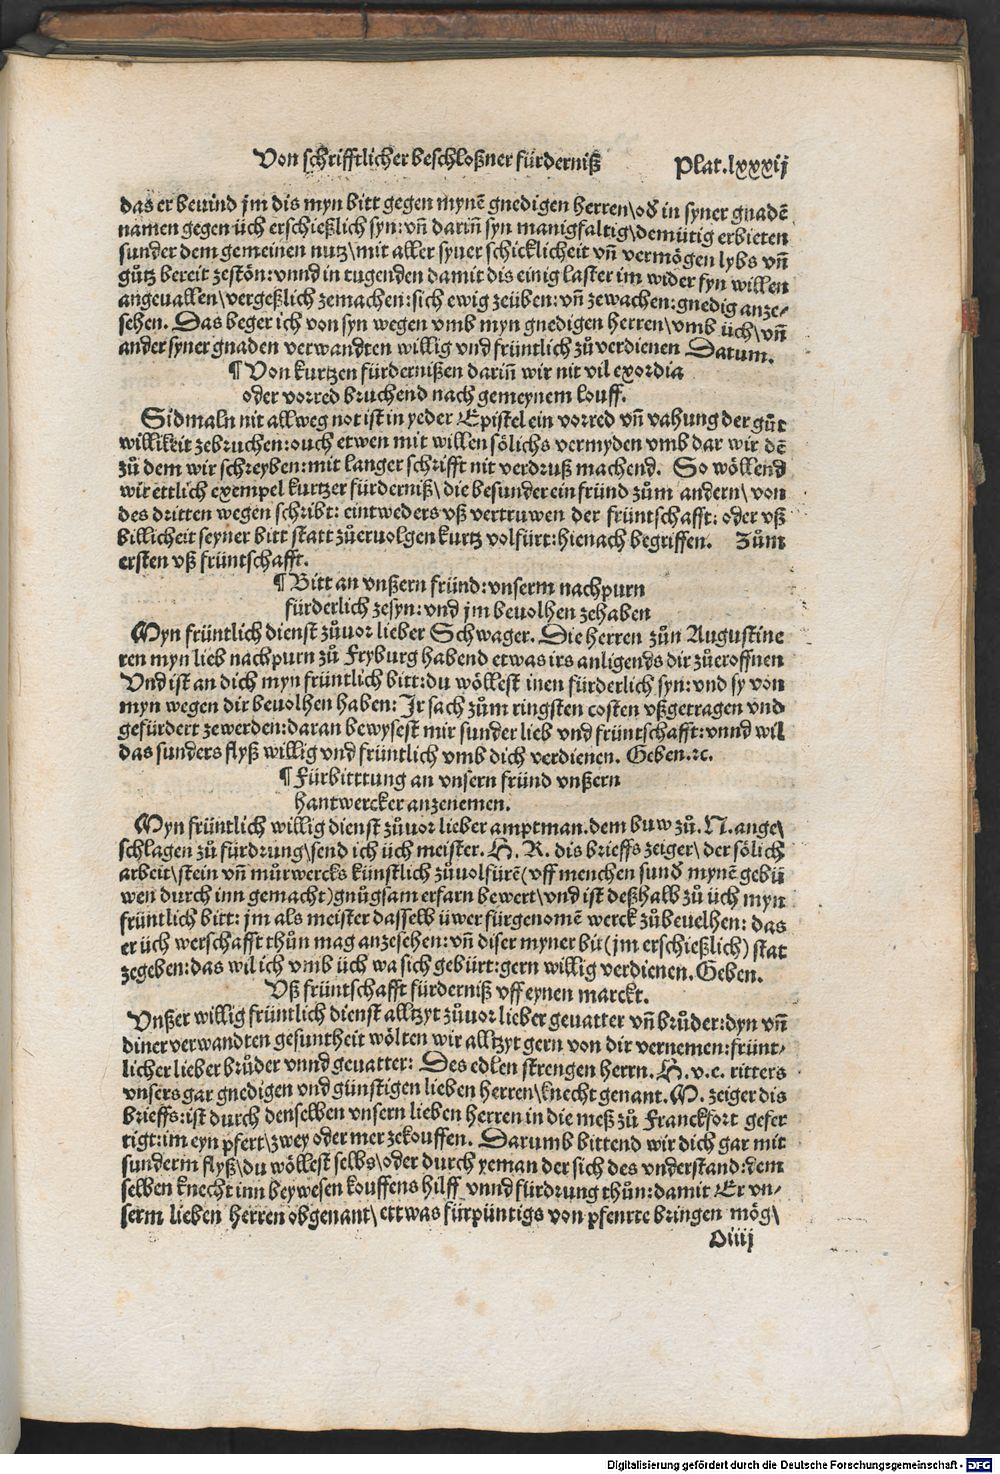 Von schrifftlicher beschloßner fürderniß Plat.lxxxij
das er beuind jm dis myn bitt gegen mynē gnedigen herren\ od̄ in syner gnadē
namen gegen üch erschießlich syn: vn̄ darin̄ syn manigfaltig\ demütig erbieten
sunder dem gemeinen nutz\ mit aller syner schicklicheit vn̄ vermögen lybs vn̄
gůtz bereit zestōn: vnnd in tugenden damit dis einig laster im wider syn willen
angeuallen\ vergeßlich zemachen: sich ewig zeüben: vn̄ zewachen: gnedig anze⸗
sehen. Das beger ich von syn wegen vmb myn gnedigen herren\ vmb üch\ vn̄
ander syner gnaden verwandten willig vnd früntlich zů verdienen Datum.
¶ Von kurtzen fürdernißen darin̄ wir nit vil exordia
oder vorred bruchend nach gemeynem louff.
Sidmaln nit allweg not ist in yeder Epistel ein vorred vn̄ vahung der gůt
willikeit zebruchen: ouch etwen mit willen sölichs vermyden vmb dar wir dē
zů dem wir schreyben: mit langer schrifft nit verdruß machend. So wöllend
wir ettlich exempel kurtzer fürderniß\ die besunder ein fründ zům andern\ von
des dritten wegen schribt: eintweders vß vertruwen der früntschafft: oder vß
billicheit seyner bitt statt zůeruolgen kurtz volfürt: hienach begriffen. Zům
ersten vß früntschafft.
¶ Bitt an vnßern fründ: vnserm nachpurn
fürderlich zesyn: vnd jm beuolhen zehaben
Myn früntlich dienst zůuor lieber Schwager. Die herren zůn Augustine
ren myn lieb nachpurn zů Fryburg habend etwas irs anligends dir zůeroffnen
Vnd ist an dich myn früntlich bitt: du wöllest inen fürderlich syn: vnd sy von
myn wegen dir beuolhen haben: Ir sach zům ringsten costen vßgetragen vnd
gefürdert zewerden: daran bewysest mir sunder lieb vnd früntschafft: vnnd wil
das sunders flyß willig vnd früntlich vmb dich verdienen. Geben.ꝛc.
¶ Fürbitttung an vnsern fründ vnßern
hantwercker anzenemen.
Myn früntlich willig dienst zůuor lieber amptman. dem buw zů. N. ange\
schlagen zů fürdrung\ send ich üch meister. H. R. dis brieffs zeiger\ der sölich
arbeit\ stein vn̄ můrwercks künstlich zůuolfürē (vff menchen sund̄ mynē gebü
wen durch inn gemacht) gnůgsam erfarn bewert\ vnd ist deßhalb zů üch myn
früntlich bitt: jm als meister dasselb üwer fürgenomē werck zůbeuelhen: das
er üch werschafft thůn mag anzesehen: vn̄ diser myner bit (jm erschießlich) stat
zegeben: das wil ich vmb üch wa sich gebürt: gern willig verdienen. Geben.
Vß früntschafft fürderniß vff eynen marckt.
Vnßer willig früntlich dienst alltzyt zůuor lieber geuatter vn̄ brůder: dyn vn̄
diner verwandten gesuntheit wölten wir alltzyt gern von dir vernemen: frünt⸗
licher lieber brůder vnnd geuatter: Des edlen strengen herrn. H. v. c. ritters
vnsers gar gnedigen vnd günstigen lieben herren\ knecht genant. M. zeiger dis
brieffs: ist durch denselben vnsern lieben herren in die meß zů Franckfort gefer
tigt: im eyn pfert\ zwey oder mer zekouffen. Darumb bittend wir dich gar mit
sunderm flyß\ du wöllest selbs\ oder durch yeman der sich des vnderstand: dem
selben knecht inn beywesen kouffens hilff vnnd fürdrung thůn: damit Er vn⸗
serm lieben herren obgenant\ ettwas fürpüntigs von pfenrte bringen mög\
O iiij
Digitalisierung gefördert durch die Deutsche Forschungsgemeinschaft - DFG